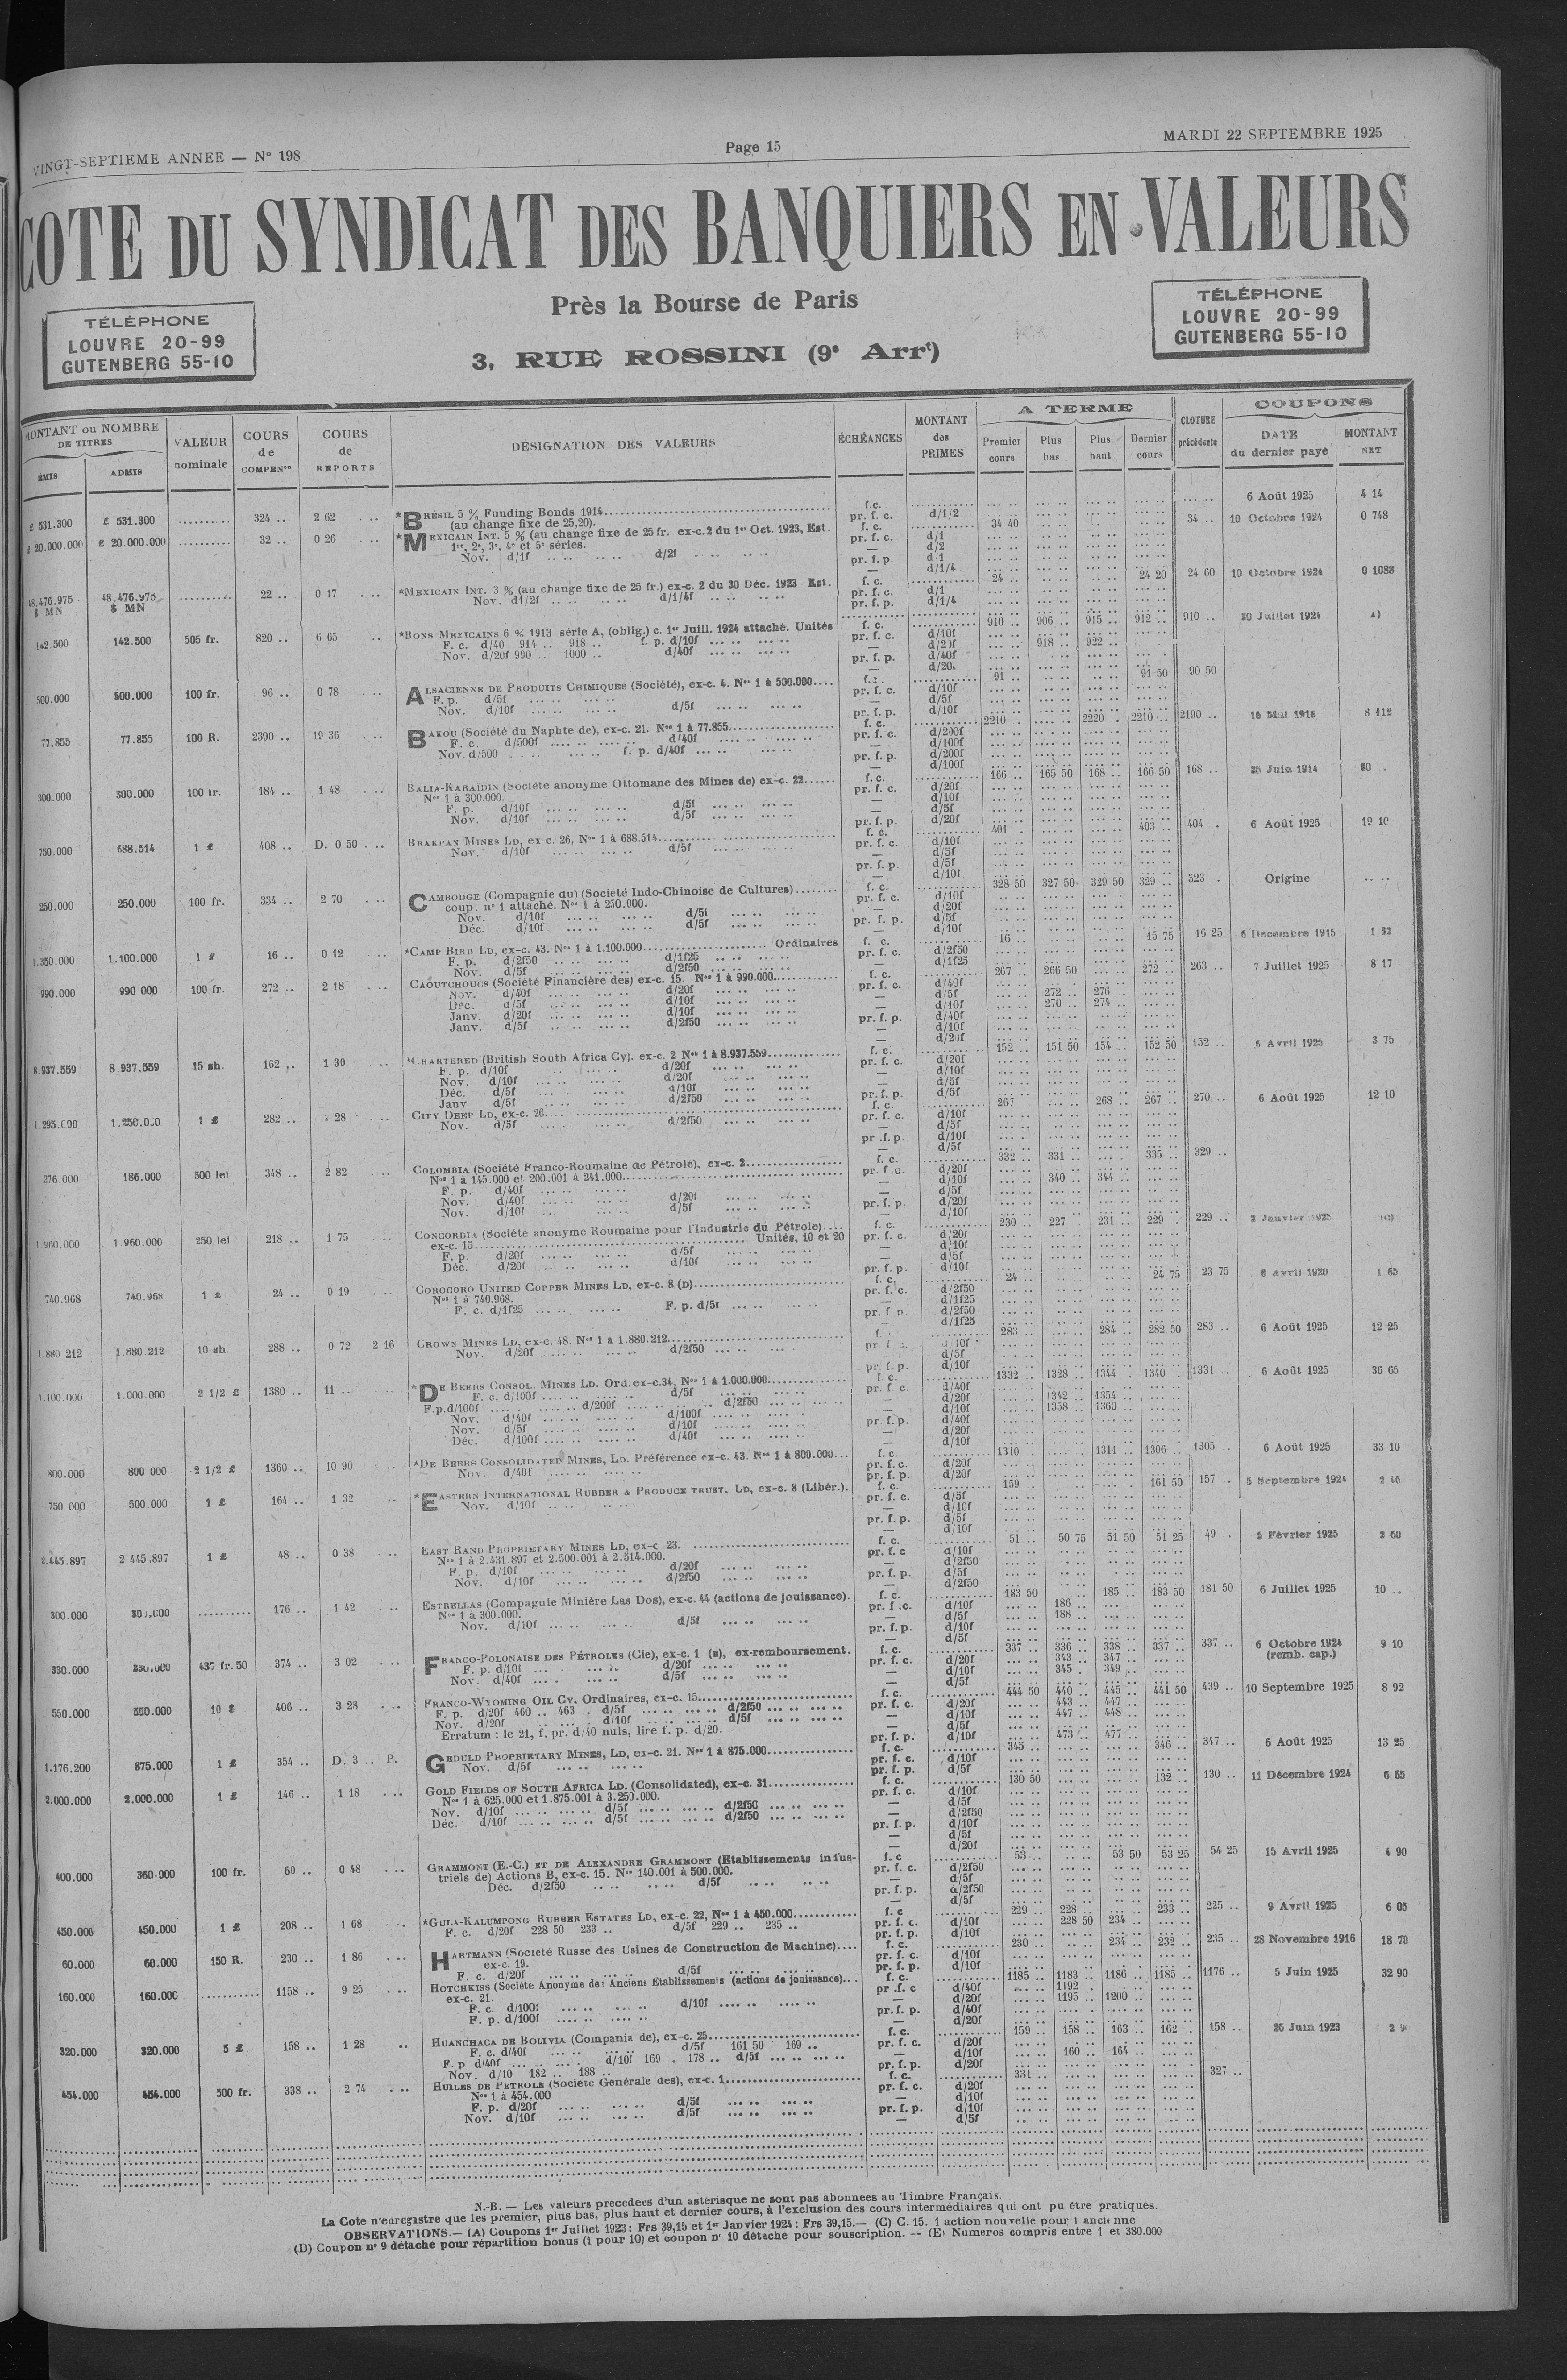 VINGT-SEPTIEME ANNEE — N° 198
Page 15
MARDI 22 SEPTEMBRE 1925
COTE DU SYNDICAT DES BANQUIERS EN VALEURS
Près la Bourse de Paris
3, RUE ROSSINI (9e Arrt)
TÉLÉPHONE
LOUVRE 20-99
GUTENBERG 55-10
TÉLÉPHONE
LOUVRE 20-99
GUTENBERG 55-10
MONTANT ou NOMBRE DE TITRES
ÉMIS ADMIS
VALEUR nominale
COURS de COMPENon
COURS de REPORTS
DESIGNATION DES VALEURS
ÉCHÉANCES
MONTANT des PRIMES
A TERME
Premier cours Plus bas Plus haut Dernier cours
CLOTURE précédente
COUPONS
DATE du dernier payé
MONTANT NET
£ 531.300 £ 531.300 .......... 324 .. 2 62 *BRÉSIL 5 % Funding Bonds 1914 f.c. 6 Août 1925 4 14
(au change fixe de 25,20). pr. f. c. d/1/2
£ 20.000.000 £ 20.000.000 .......... 32 .. 0 26 *MEXICAIN INT. 5 % (au change fixe de 25 fr. ex-c. 2 du 1er Oct. 1923, Est. f. c. 34 40 34 .. 10 Octobre 1924 0 748
1re, 2e, 3e, 4e et 5e séries. pr. f. c. d/1
Nov. d/1f d/2f — d/2
pr. f. p. d/1
— d/1/4
48.476.975 $ MN 48.476.975 $ MN .......... 22 .. 0 17 *MEXICAIN INT. 3 % (au change fixe de 25 fr.) ex-c. 2 du 30 Déc. 1923 Est. f. c. 24 .. 24 20 24 60 10 Octobre 1924 0 1088
Nov. d1/2f d/1/4f pr. f. c. d/1
pr. f. p. d/1/4
142.500 142.500 505 fr. 820 .. 6 65 *BONS MEXICAINS 6 % 1913 série A, (oblig.) c. 1er Juill. 1924 attaché. Unités f. c. 910 .. 906 .. 915 .. 912 .. 910 .. 30 Juillet 1924 A)
F. c. d/40 914 .. 918 .. f. p. d/10f pr. f. c. d/10f
Nov. d/20f 990 .. 1000 .. d/40f — d/20f 918 .. 922 ..
pr. f. p. d/40f
— d/20.
500.000 500.000 100 fr. 96 .. 0 78 ALSACIENNE DE PRODUITS CHIMIQUES (Société), ex-c. 4. Nos 1 à 500.000 91 .. 91 50 90 50
F. p. d/5f pr. f. c. d/10f
Nov. d/10f d/5f — d/5f
pr. f. p. d/10f
77.855 77.855 100 R. 2390 .. 19 36 BAKOU (Société du Naphte de), ex-c. 21. Nos 1 à 77.855 f. c. 2210 . 2220 .. 2210 .. 2190 .. 16 Mai 1916 8 112
F. c. d/500f d/40f pr. f. c. d/200f
Nov. d/500 f. p. d/40f — d/100f
pr. f. p. d/200f
— d/100f
300.000 300.000 100 fr. 184 .. 1 48 BALIA-KARAÏDIN (Société anonyme Ottomane des Mines de) ex-c. 22 f. c. 166 .. 165 50 168 .. 166 50 168 .. 25 Juin 1914 20 ..
Nos 1 à 300.000. pr. f. c. d/20f
F. p. d/10f d/5f — d/10f
Nov. d/10f d/5f — d/5f
pr. f. p. d/20f
750.000 688.514 1 £ 408 .. D. 0 50 BRAKPAN MINES LD, ex-c. 26, Nos 1 à 688.514 f. c. 401 . 403 .. 404 . 6 Août 1925 19 10
Nov. d/10f d/5f pr. f. c. d/10f
— d/5f
pr. f. p. d/5f
— d/10f
250.000 250.000 100 fr. 334 .. 2 70 CAMBODGE (Compagnie du) (Société Indo-Chinoise de Cultures) f. c. 328 50 327 50 329 50 329 .. 323 . Origine
coup. n° 1 attaché. Nos 1 à 250.000. pr. f. c. d/10f
Nov. d/10f d/5f — d/20f
Déc. d/10f d/5f pr. f. p. d/5f
— d/10f
1.350.000 1.100.000 1 £ 16 .. 0 12 *CAMP BIRD LD, ex-c. 43. Nos 1 à 1.100.000 Ordinaires f. c. 16 .. 15 75 16 25 6 Decembre 1915 1 32
F. p. d/2f50 d/1f25 pr. f. c. d/2f50
Nov. d/5f d/2f50 — d/1f25
990.000 990 000 100 fr. 272 .. 2 18 CAOUTCHOUCS (Société Financière des) ex-c. 15. Nos 1 à 990.000 f. c. 267 .. 266 50 272 .. 263 .. 7 Juillet 1925 8 17
Nov. d/40f d/20f pr. f. c. d/40f
Déc. d/5f d/10f — d/5f 272 .. 276 .
Janv. d/20f d/10f — d/10f 270 .. 274 ..
Janv. d/5f d/2f50 pr. f. p. d/40f
— d/10f
— d/20f
8.937.559 8 937.559 15 sh. 162 .. 1 30 *CHARTERED (British South Africa Cy). ex-c. 2 Nos 1 à 8.937.559 f. c. 152 .. 151 50 154 .. 152 50 152 .. 5 Avril 1925 3 75
F. p. d/10f d/20f pr. f. c. d/20f
Nov. d/10f d/20f — d/10f
Déc. d/5f d/10f — d/5f
Janv d/5f d/2f50 pr. f. p. d/5f
1.295.000 1.250.000 1 £ 282 .. 28 CITY DEEP LD, ex-c. 26 f. c. 267 .. 268 .. 267 .. 270 .. 6 Août 1925 12 10
Nov. d/5f d/2f50 pr. f. c. d/10f
— d/5f
pr. f. p. d/10f
— d/5f
276.000 186.000 500 lei 348 .. 2 82 COLOMBIA (Société Franco-Roumaine de Pétrole), ex-c. 2 f. c. 332 .. 331 .. 335 .. 329 ..
Nos 1 à 145.000 et 200.001 à 241.000 pr. f. c. d/20f
F. p. d/40f — d/10f 340 .. 344 ..
Nov. d/40f d/20f — d/5f
Nov. d/10f d/5f pr. f. p. d/20f
— d/10f
1.960.000 1.960.000 250 lei 218 .. 1 75 CONCORDIA (Société anonyme Roumaine pour l'Industrie du Pétrole) f. c. 230 .. 227 . 231 .. 229 . 229 .. 2 Janvier 1925 (c)
ex-c. 15 Unités, 10 et 20 pr. f. c. d/20f
F. p. d/20f d/5f — d/10f
Déc. d/20f d/10f — d/5f
pr. f. p. d/10f
740.968 740.968 1 £ 24 .. 0 19 COROCORO UNITED COPPER MINES LD, ex-c. 8 (D) f. c. 24 .. 24 75 23 75 8 Avril 1920 1 65
Nos 1 à 740.968. pr. f. c. d/2f50
F. c. d/1f25 F. p. d/5f — d/1f25
pr. f. p. d/2f50
— d/1f25
1.880 212 1.880 212 10 sh. 288 .. 0 72 2 16 CROWN MINES LD, ex-c. 48. Nos 1 à 1.880.212 283 .. 284 .. 282 50 283 .. 6 Août 1925 12 25
Nov. d/20f d/2f50 d/10f
— d/5f
pr. f. p. d/10f
1.100.000 1.000.000 2 1/2 £ 1380 .. 11 .. *DE BEERS CONSOL. MINES LD. Ord. ex-c. 34, Nos 1 à 1.000.000 f. c. 1332 .. 1328 .. 1344 .. 1340 .. 1331 .. 6 Août 1925 36 65
F. c. d/100f d/5f pr. f. c. d/40f
F.p.d/100f d/200f d/2f50 — d/20f 1342 .. 1354 ..
Nov. d/40f d/100f — d/10f 1358 .. 1360 ..
Nov. d/5f d/10f pr. f. p. d/40f
Déc. d/100f d/40f — d/20f
— d/10f
800.000 800 000 2 1/2 £ 1360 .. 10 90 *DE BEERS CONSOLIDATED MINES, LD. Préférence ex-c. 43. Nos 1 à 800.000 f. c. 1310 .. 1311 .. 1306 .. 1305 . 6 Août 1925 33 10
Nov. d/40f pr. f. c. d/20f
pr. f. p. d/20f
750 000 500.000 1 £ 164 .. 1 32 *EASTERN INTERNATIONAL RUBBER & PRODUCE TRUST, LD, ex-c. 8 (Libér.). f. c. 159 .. 161 50 157 .. 5 Septembre 1924 2 40
Nov. d/10f pr. f. c. d/5f
— d/10f
pr. f. p. d/5f
— d/10f
2.445.897 2 445.897 1 £ 48 .. 0 38 EAST RAND PROPRIETARY MINES LD, ex-c 23. f. c. 51 .. 50 75 51 50 51 25 49 .. 5 Février 1925 2 60
Nos 1 à 2.431.897 et 2.500.001 à 2.514.000. pr. f. c d/10f
F. p. d/10f d/20f — d/2f50
Nov. d/10f d/2f50 pr. f. p. d/5f
— d/2f50
300.000 300.000 .......... 176 .. 1 42 ESTRELLAS (Compagnie Minière Las Dos), ex-c. 44 (actions de jouissance). f. c. 183 50 185 .. 183 50 181 50 6 Juillet 1925 10 ..
Nos 1 à 300.000. pr. f .c. d/10f 186 ..
Nov. d/10f d/5f — d/5f 188 ..
pr. f. p. d/10f
— d/5f
330.000 330.000 437 fr.50 374 .. 3 02 FRANCO-POLONAISE DES PÉTROLES (Cie), ex-c. 1 (E), ex-remboursement. f. c. 337 .. 336 .. 338 .. 337 .. 337 .. 6 Octobre 1924 (remb. cap.) 9 10
F. p. d/10f d/20f pr. f. c. d/20f 343 .. 347 ..
Nov. d/40f d/5f — d/10f 345 . 349 ..
— d/5f
550.000 550.000 10 $ 406 .. 3 28 FRANCO-WYOMING OIL CY. Ordinaires, ex-c. 15 f. c. 444 50 440 .. 445 .. 441 50 439 .. 10 Septembre 1925 8 92
F. p. d/20f 460 .. 463 . d/5f d/2f50 pr. f. c. d/20f 443 .. 447 ..
Nov. d/20f d/10f d/5f — d/10f 447 .. 448 ..
Erratum : le 21, f. pr. d/40 nuls, lire f. p. d/20. — d/5f
pr. f. p. d/10f 473 .. 477 ..
1.176.200 875.000 1 £ 354 .. D. 3 .. P. GEDULD PROPRIETARY MINES, LD, ex-c. 21. Nos 1 à 875.000 f. c. 345 .. 346 .. 347 .. 6 Août 1925 13 25
Nov. d/5f pr. f. c. d/10f
pr. f. p. d/5f
2.000.000 2.000.000 1 £ 146 .. 1 18 GOLD FIELDS OF SOUTH AFRICA LD. (Consolidated), ex-c. 31 f. c. 130 50 132 .. 130 .. 11 Décembre 1924 6 65
Nos 1 à 625.000 et 1.875.001 à 3.250.000. pr. f. c. d/10f
Nov. d/10f d/5f d/2f50 — d/5f
Déc. d/10f d/5f d/2f50 — d/2f50
pr. f. p. d/10f
— d/5f
— d/20f
400.000 360.000 100 fr. 60 .. 0 48 GRAMMONT (E.-C.) ET DE ALEXANDRE GRAMMONT (Etablissements indus- f. c 53 .. 53 50 53 25 54 25 15 Avril 1925 4 90
triels de) Actions B, ex-c. 15. Nos 140.001 à 500.000. pr. f. c. d/2f50
Déc. d/2f50 d/5f — d/5f
pr. f. p. d/2f50
— d/5f
450.000 450.000 1 £ 208 .. 1 68 *GULA-KALUMPONG RUBBER ESTATES LD, ex-c. 22, Nos 1 à 450.000 f. c 229 .. 228 .. 233 .. 225 .. 9 Avril 1925 6 05
F. c. d/20f 228 50 233 .. d/5f 229 .. 235 .. pr. f. c. d/10f 228 50 234 ..
pr. f. p. d/10f
60.000 60.000 150 R. 230 .. 1 86 HARTMANN (Société Russe des Usines de Construction de Machine) f. c. 230 .. 234 .. 232 .. 235 .. 28 Novembre 1916 18 70
ex-c. 19. pr. f. c. d/10f
F. c. d/20f d/5f pr. f. p. d/10f
160.000 160.000 .......... 1158 .. 9 25 HOTCHKISS (Société Anonyme des Anciens Etablissements (actions de jouissance) f. c. 1185 .. 1183 .. 1186 .. 1185 .. 1176 .. 5 Juin 1925 32 90
ex-c. 21. pr .f. c d/40f 1192 ..
F. c. d/100f d/10f — d/20f 1195 .. 1200 ..
F. p. d/100f pr. f. p. d/40f
— d/20f
320.000 320.000 5 £ 158 .. 1 28 HUANCHACA DE BOLIVIA (Compania de), ex-c. 25 f. c. 159 .. 158 .. 163 .. 162 . 158 .. 26 Juin 1923
F. c. d/40f d/5f 161 50 169 .. pr. f. c. d/20f
F. p d/40f d/10f 169 . 178 .. d/5f — d/10f 160 .. 164 ..
Nov. d/10 182 .. 188 .. pr. f. p. d/20f
454.000 454.000 500 fr. 338 .. 2 74 HUILES DE PETROLE (Société Générale des), ex-c. 1 f. c. 331 .. 327 ..
Nos 1 à 454.000 pr. f. c. d/20f
F. p. d/20f d/5f — d/10f
Nov. d/10f d/5f pr. f. p. d/10f
— d/5f
N.-B. — Les valeurs precedees d'un asterisque ne sont pas abonnees au Timbre Français.
La Cote n'enregistre que les premier, plus bas, plus haut et dernier cours, à l'exclusion des cours intermédiaires qui ont pu être pratiqués.
OBSERVATIONS.— (A) Coupons 1er Juillet 1923 : Frs 39,15 et 1er Janvier 1924 : Frs 39,15.— (C) C. 15. 1 action nouvelle pour 1 ancienne
(D) Coupon n° 9 détaché pour répartition bonus (1 pour 10) et coupon n° 10 détaché pour souscription. -- (E) Numéros compris entre 1 et 380.000